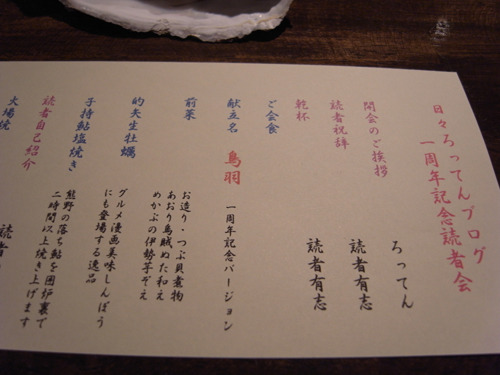 日々ろってんブログ
一周年記念読者会
開会のご挨拶 ろってん
読者祝辞 読者有志
乾杯 読者有志
ご会食
献立名 鳥羽 一周年記念バージョン
前菜 お造り・つぶ貝煮物
あおり烏賊ぬた和え
めかぶの伊勢芋ぞえ
的矢生牡蠣 グルメ漫画美味しんぼう
にも登場する逸品
子持鮎塩焼き 熊野の落ち鮎を囲炉裏で
二時間以上焼き上げます
読者自己紹介 読者